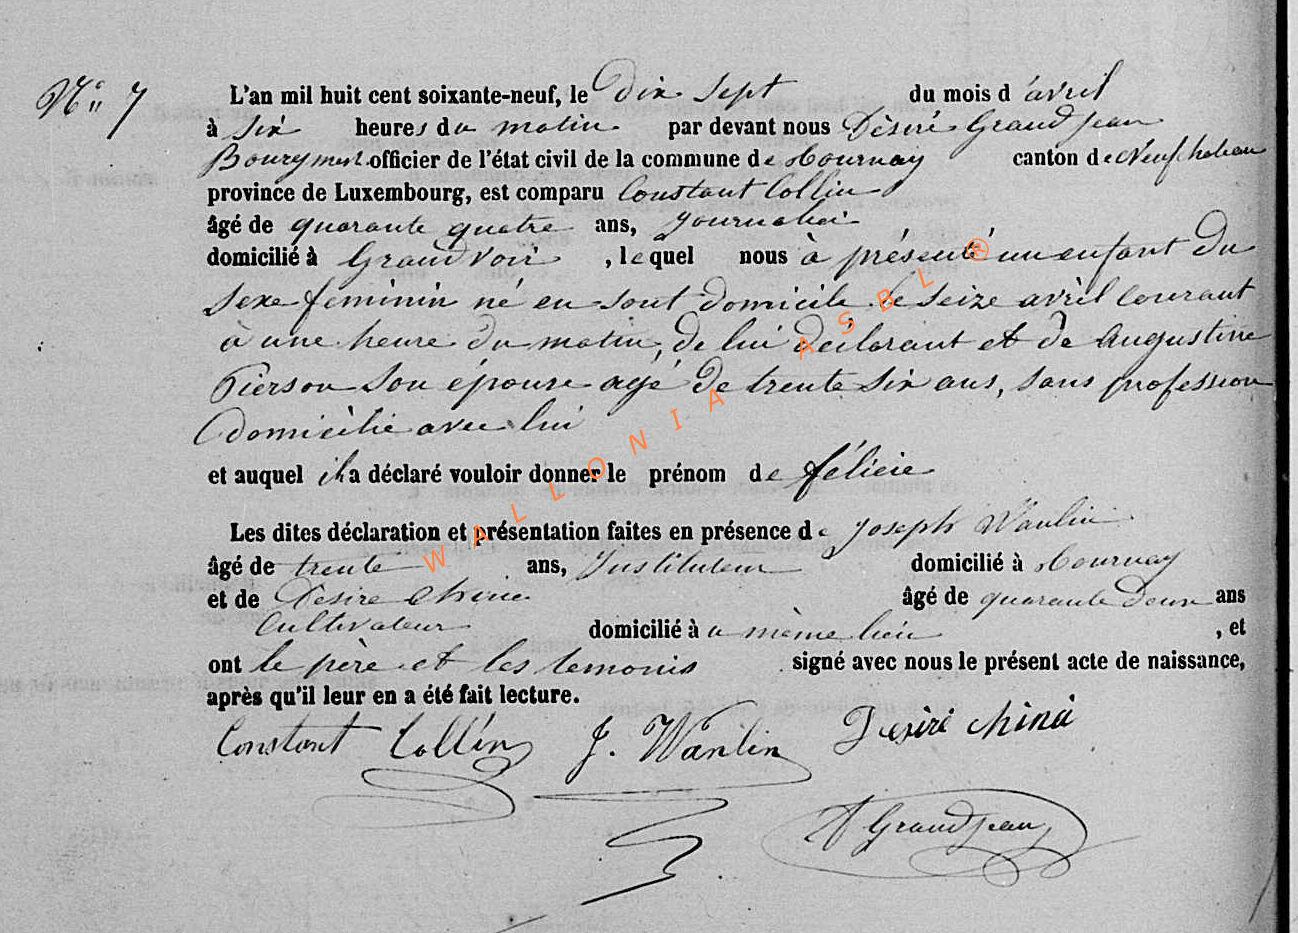 Nº 7
L'an mil huit cent soixante-neuf, le Dix Sept du mois d'avril
à six heures du matin par devant nous Désiré Grandjean
Bourgmest. officier de l'état civil de la commune de Tournay canton de Neufchateau
province de Luxembourg, est comparu Constant Collin
âgé de quarante quatre ans, journalier
domicilié à Grandvoir, lequel nous à présenté un enfant Du
sexe feminin né en sont domicile le seize avril courant
à une heure du matin, de lui déclarant et de Augustine
Pierson son épouse agé de trente six ans, sans profession
Domicilié avec lui
et auquel il a déclaré vouloir donner le prénom de félicie
Les dites déclaration et présentation faites en présence de Joseph Wanlin
âgé de trente ans, Instituteur domicilié à Tournay
et de Désiré Chiné âgé de quarante Deux ans
Cultivateur domicilié à u même lieu, et
ont le père et les temoins signé avec nous le présent acte de naissance,
après qu'il leur en a été fait lecture.
Constant Collin J. Wanlin Désiré Chiné
Grandjean
WALLONIA ASBL ®